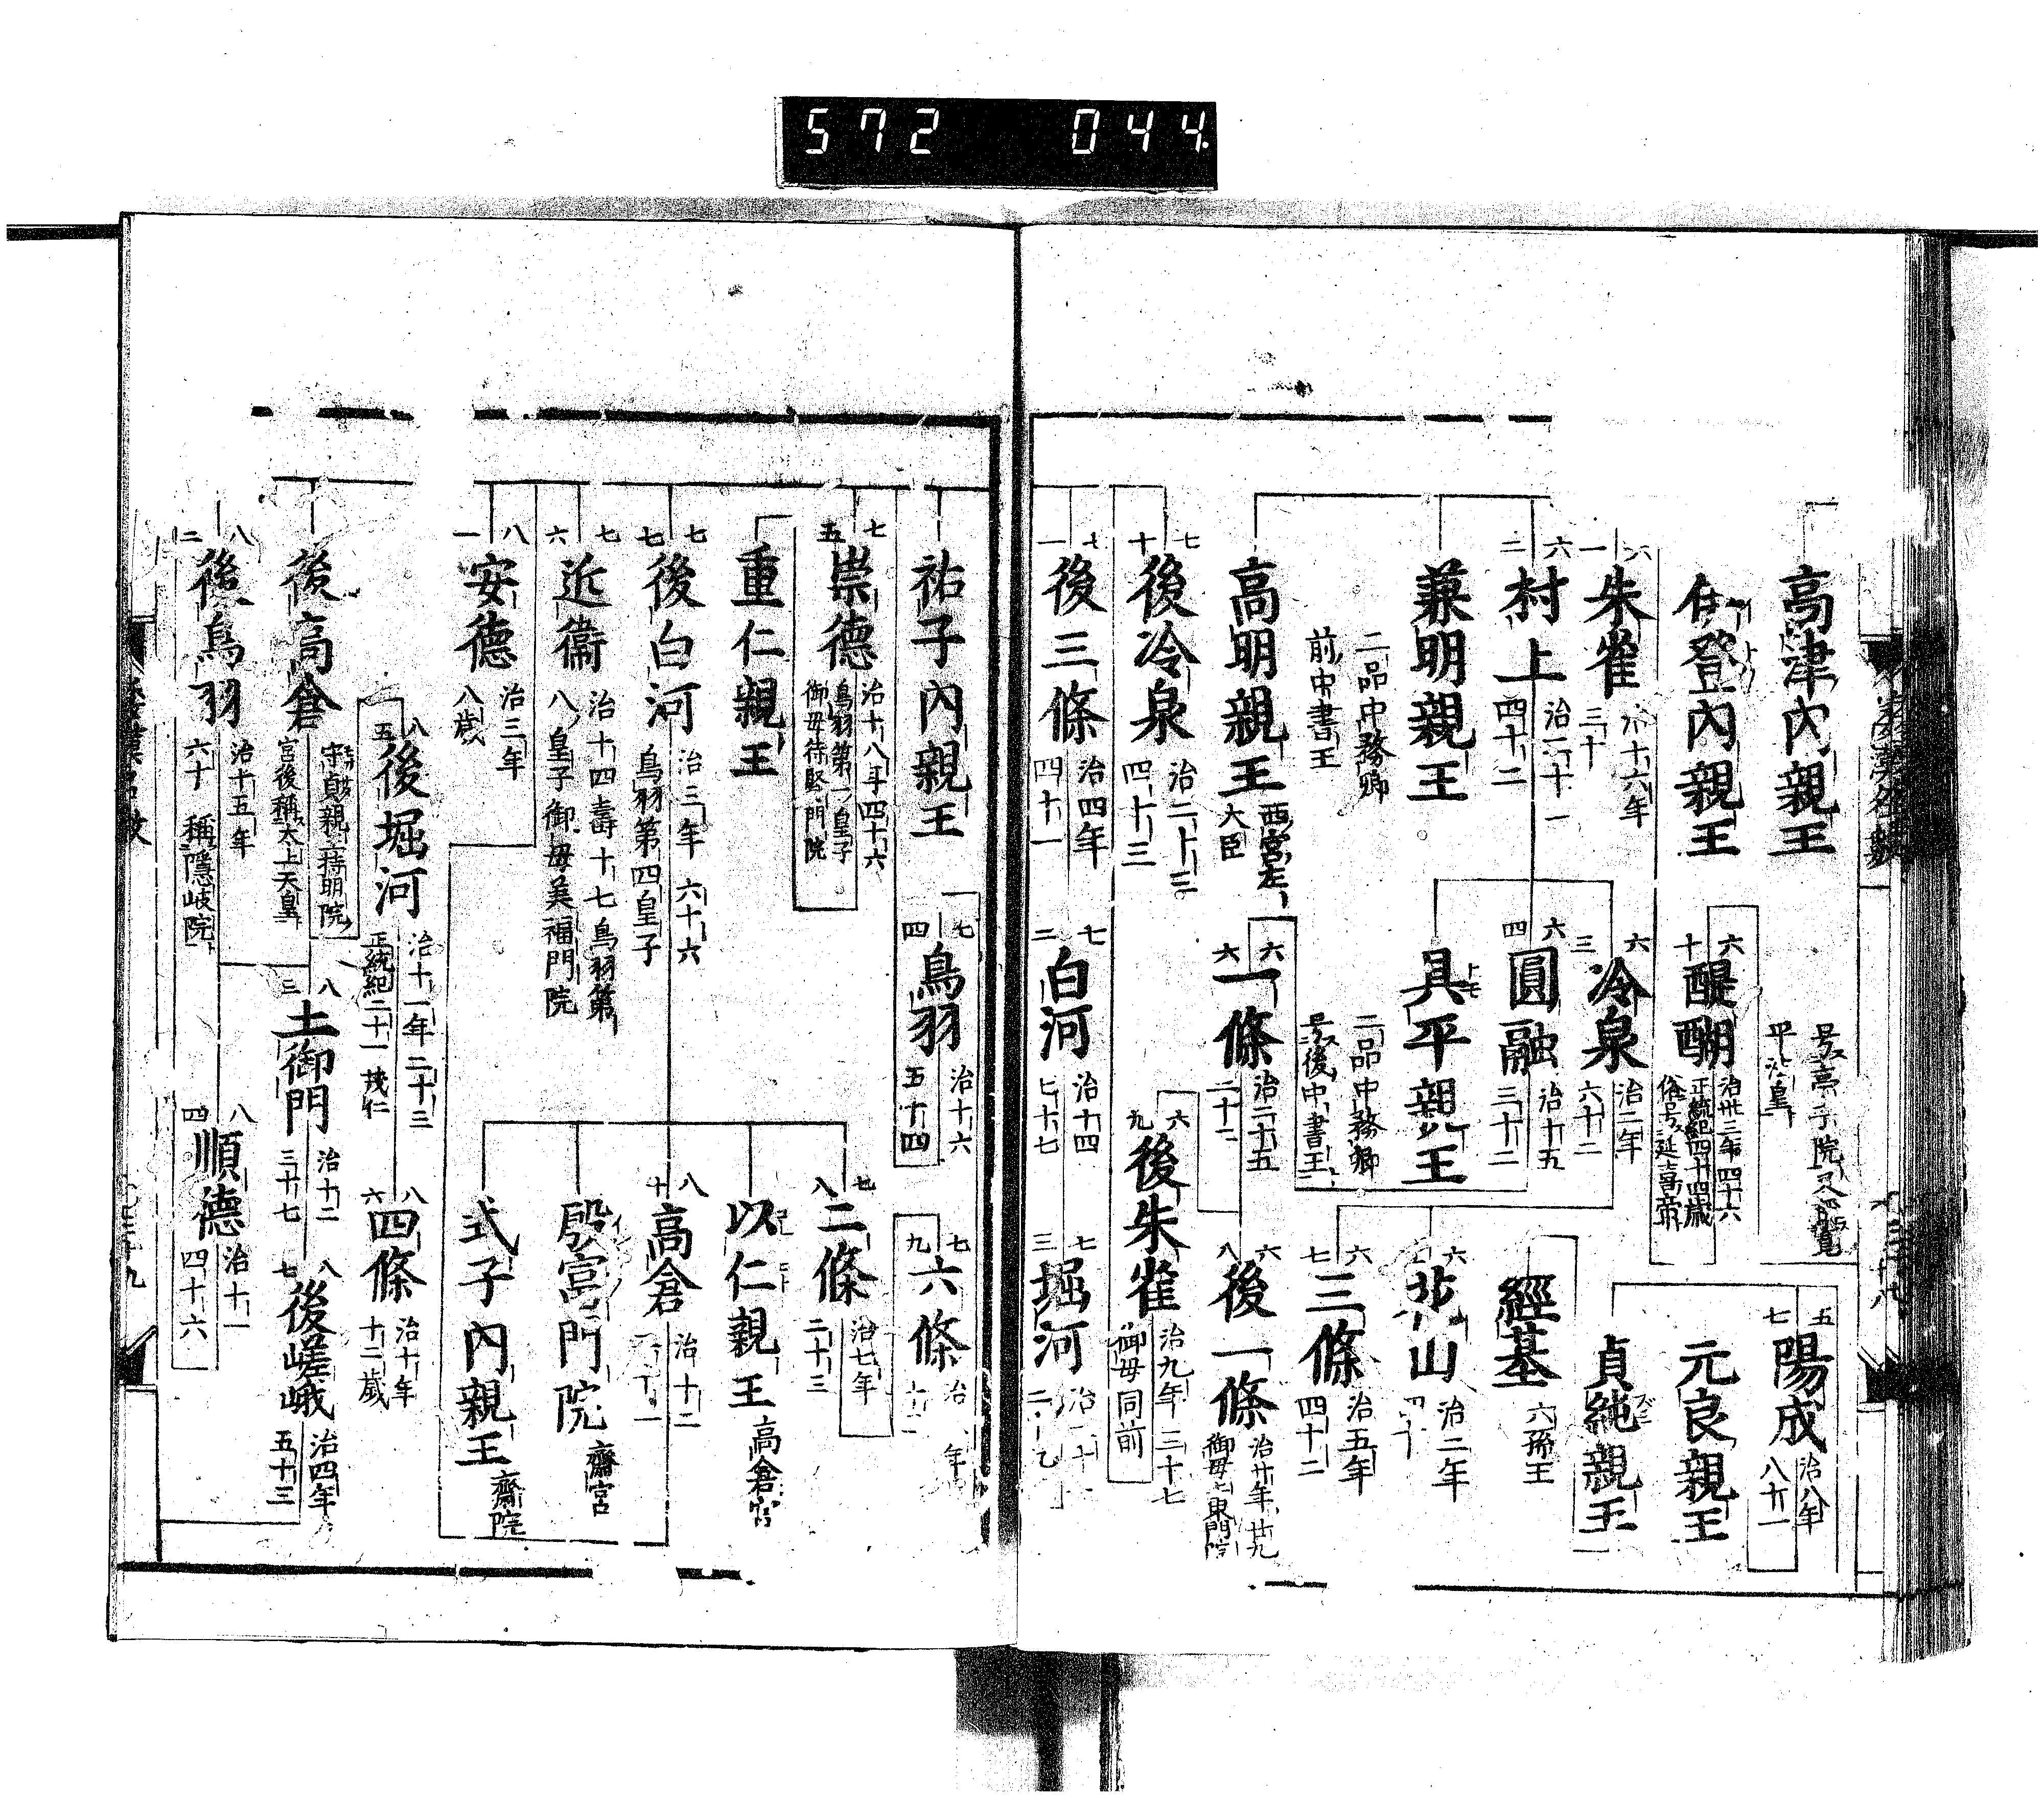 572 044
高津内親王
号亭子院又
平
五七
陽成
治八年
八十一
元良親王
貞純親王
經基
六孫王
登内親王
六十
醍醐
治卅三年四十六
正統紀四十四歳
俗号延喜帝
六一
朱雀
治十六年
三十
六三
冷泉
治二年
六十二
六二
村上
治二十一
四十二
六四
圓融
治十五
三十二
兼明親王
二品中務卿
前中書王
具平親王
二品中務卿
号後中書王
六
花山
治二年
六七
三條
治五年
四十二
高明親王
西宮左
大臣
六六
一條
治二十五
三十二
六八
後一條
治廿年廿九
御母上東門院
六九
後朱雀
治九年三十七
御母同前
七十
後冷泉
治二十三
四十三
七一
後三條
治四年
四十一
七二
白河
治十四
七十七
七三
堀河
祐子内親王
七四
鳥羽
治十六
五十四
七五
崇徳
治十八年四十六
鳥羽第一皇子
御母待賢門院
重仁親王
七七
後白河
治三年 六十六
鳥羽第四皇子
七八
二條
治七年
二十三
七九
六條
治 年
以仁親王
高倉宮
八十
高倉
治十二
殷富門院
齋宮
式子内親王
齋院
七六
近衞
治十四壽十七鳥羽第
八皇子御母美福門院
八一
安徳
治三年
八歳
後高倉
守貞親王持明院
宮後稱太上天皇
八五
後堀河
治十一年二十三
正統紀二十一 茂仁
八六
四條
治十年
十二歳
八二
後鳥羽
治十五年
六十 稱隱岐院
八三
土御門
治十二
三十七
八七
後嵯峨
治四年
五十三
八四
順徳
治十一
四十六